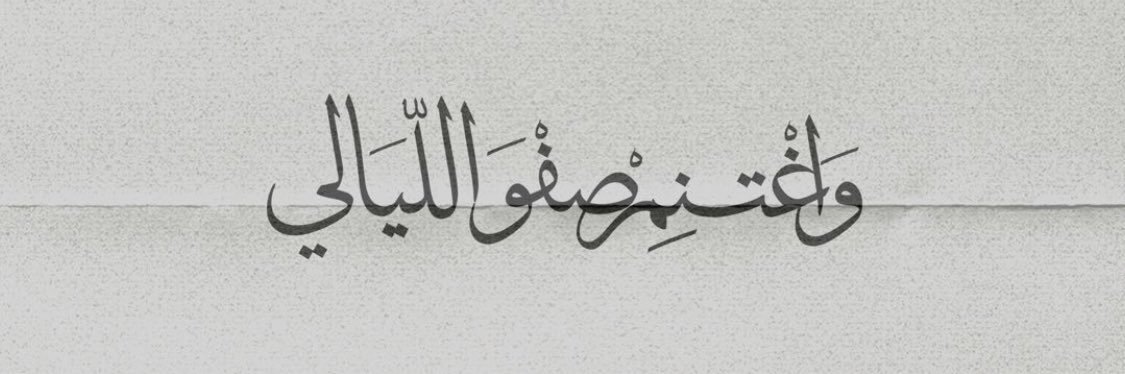 وَاغْتَنِمْ صَفْوَ اللّيَالي